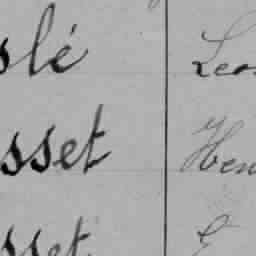 slé Leo
sset Hen
sset G